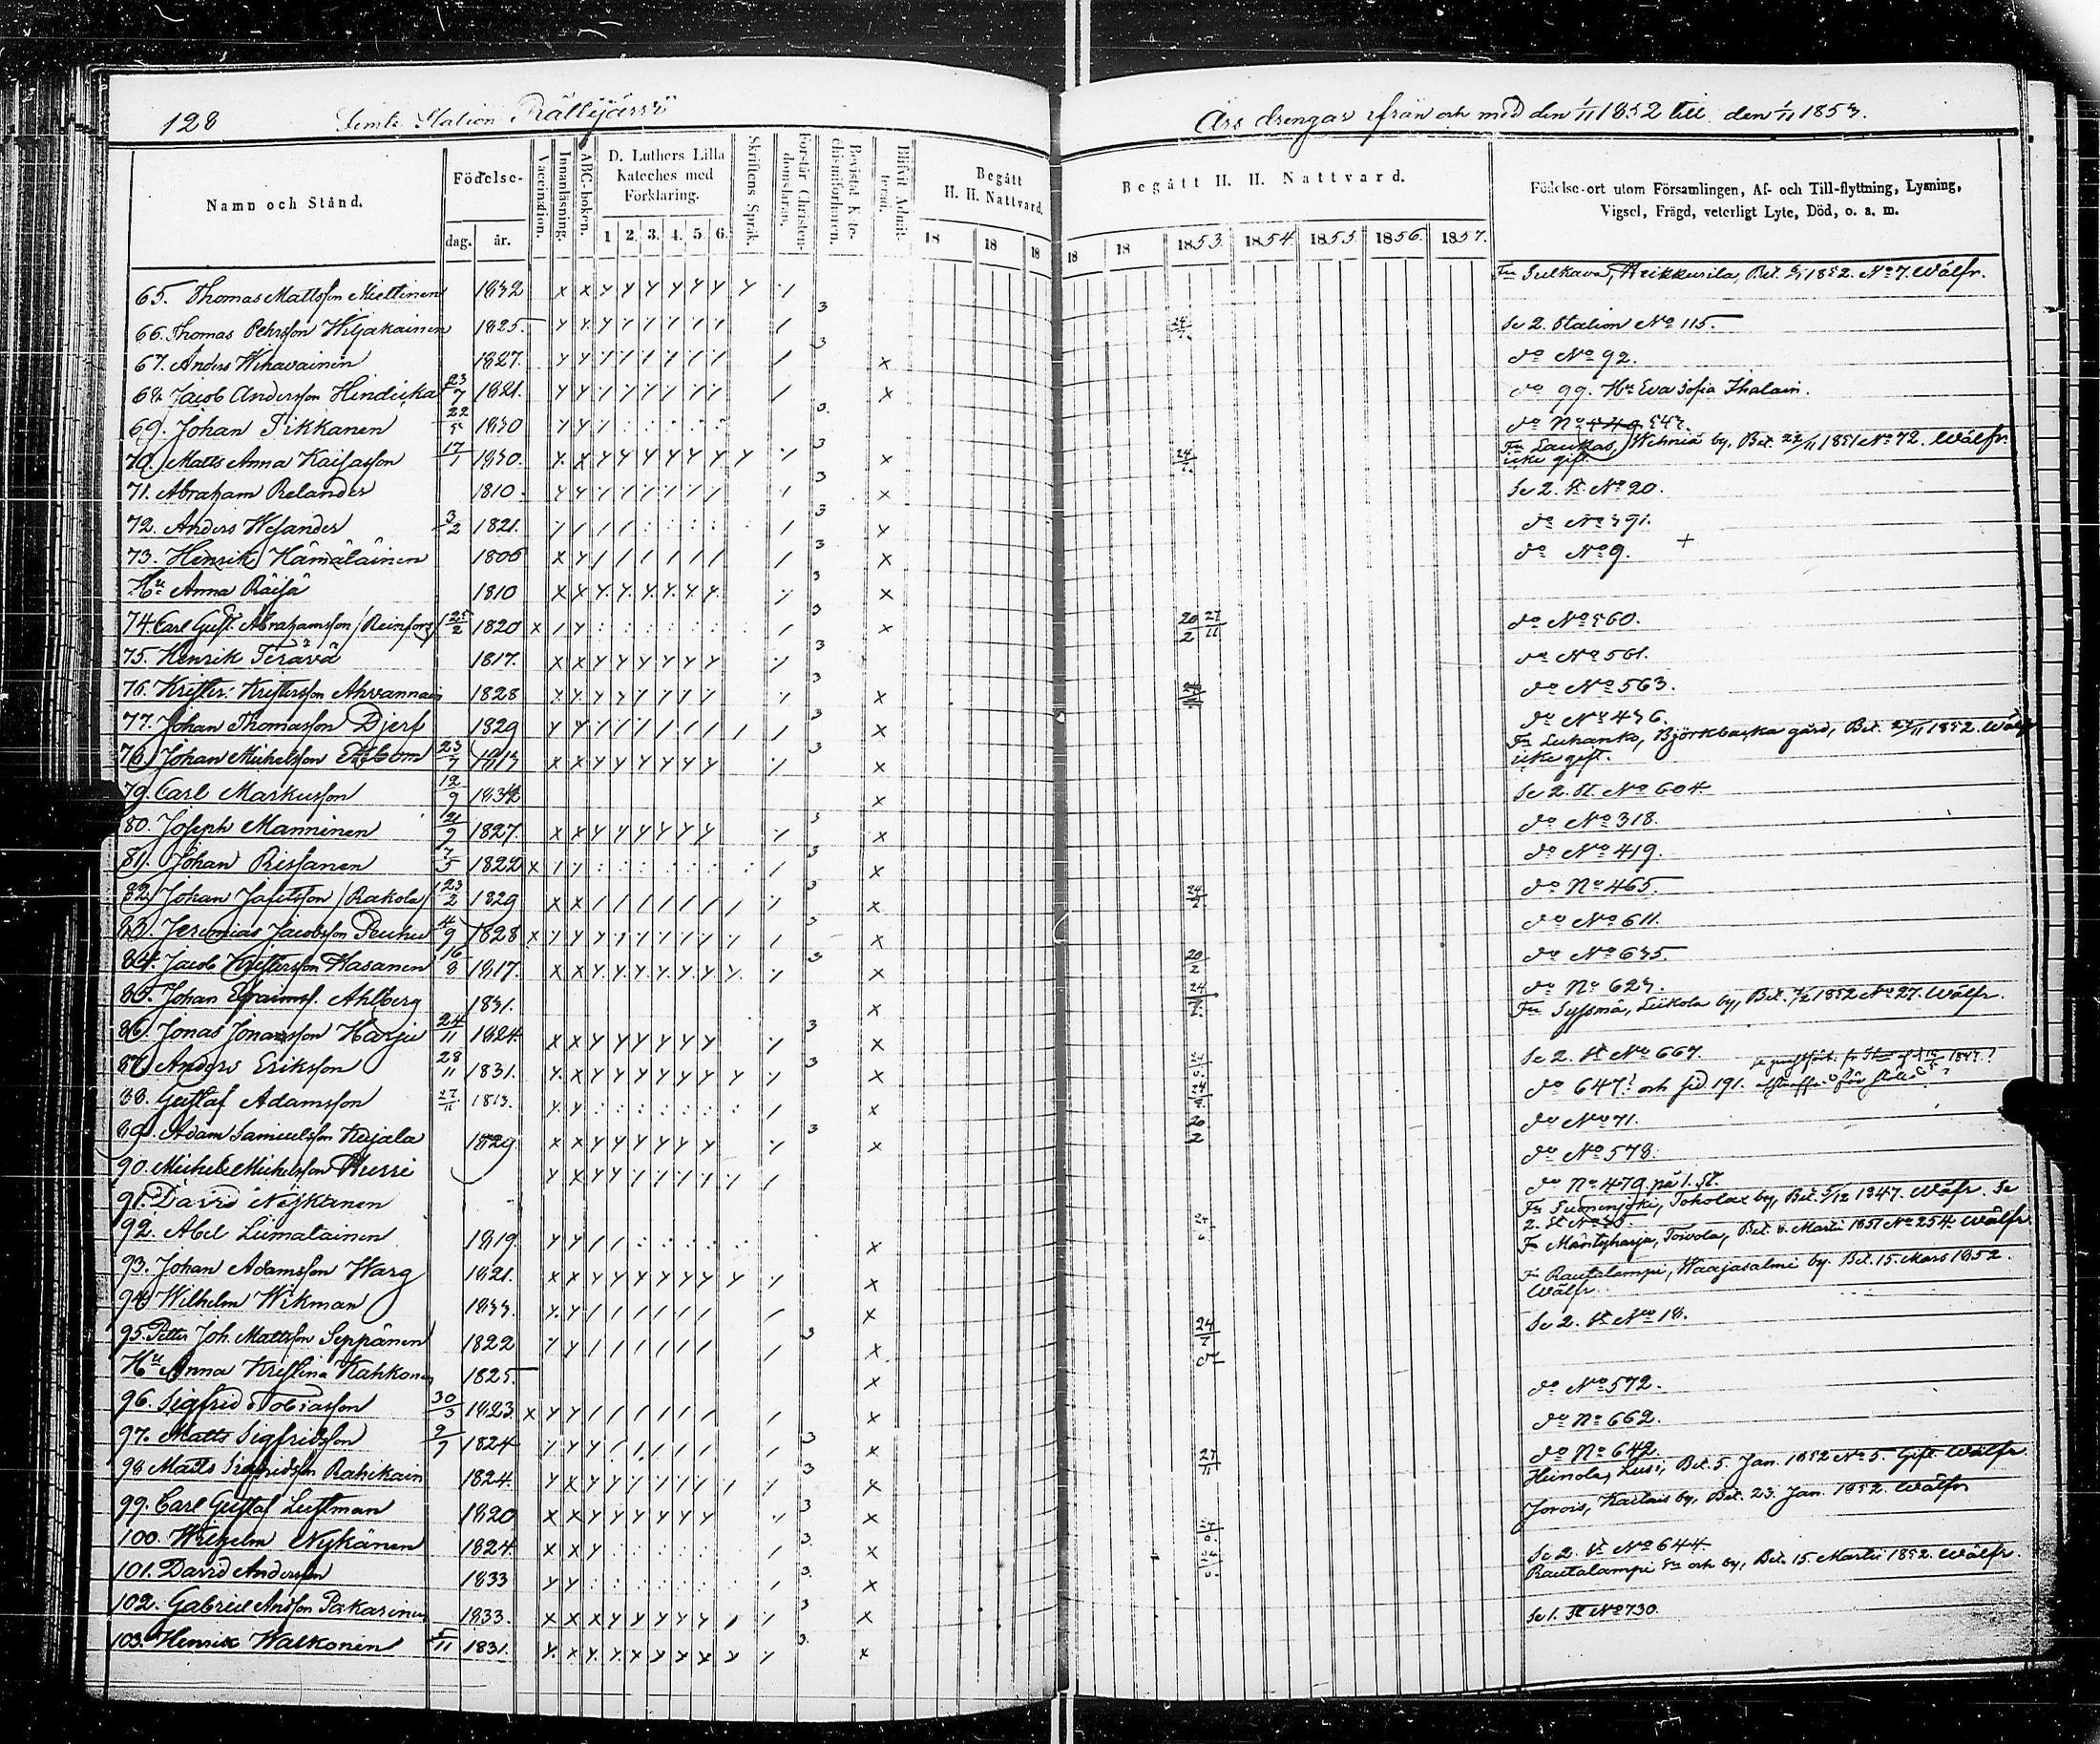 128 Femte Station Rättijärvi
Års drengar ifrån och med den 1/11 1852 till den 1/11 1853.
Namn och Stånd.
Födelse-
dag. år.
Vaccination.
Innanläsning.
ABC-boken.
D. Luthers Lilla Kateches med Förklaring.
1 2. 3. 4. 5. 6.
Skriftens Språk.
Förstår Christendomsläran.
Bevistat Katechismiförhören.
Blifvit Admitteran.
Begått H. H. Nattvard.
18 18 18
Begått H. H. Nattvard.
18 18 1853. 1854. 1855. 1856. 1857.
Födelse-ort utom Församlingen, Af- och Till-flyttning, Lysning,
Vigsel, Frägd, veterligt Lyte, Död, o. a. m.
65. Thomas Mattsson Miettinen 1832 Fr Sulkava, Heikkurila, Bet. 1852. No 7. Wälfr.
66. Thomas Pehrsson Wiljakainen 1825. 24 Se 2. Station No 115.
67. Anders Wihavainen 1827. do No 92.
68. Jacob Andersson Hindrika 23/7 1821. do 99. Hu Eva Sofia Ihalain.
69. Johan Tikkanen 22/5 1830 do No 543.
70. Matts Anna Kaisasson 17/1 1830. 24 Fr Laukas, Wehniä by, Bet. 22/11 1851 No 72. Wälfr. icke gift.
71. Abraham Relander 1810. Se 2. St. No 20.
72. Anders Wesander 3/2 1821. do No 391.
73. Henrik Hämäläinen 1806 do No 9. +
Hu Anna Räisä 1810
74. Carl Gust. Abrahamsson /Reinfors/ 25/2 1820 20/2 27/11 do No 560.
75. Henrik Terävä 1817. do No 561.
76. Krister Kristersson Ahvannain 1828 do No 563.
77. Johan Thomasson Djerf 1829 do No 436.
78. Johan Michelsson Ekbom 23/7 1813 Fr Luhanko, Björkbacka gård, Bet. 24/11 1852. Wälfr icke gift.
79. Carl Markusson 12/9 1832 Se 2. St. No 604
80. Joseph Manninen 21/9 1827. do No 318.
81. Johan Rissanen 7/5 1822 do No 419.
82. Johan Jafetsson /Rakola/ 23/2 1829 24 do No 465.
83. Jeremias Jacobsson Peuhu 4/9 1828 do No 611.
84. Jacob Kristersson Hasanen 16/8 1817. 20/2 do No 635.
85. Johan Efraimss. Ahlberg 1831. 24 do No 623.
Fr Syssmä, Liikola by, Bet. 1852 No 27. Wälfr.
86. Jonas Jonasson Harju 24/11 1824. Se 2. St No 667.
87. Anders Eriksson 28/11 1831. do 647! och sid 191.
88. Gustaf Adamsson 27/11 1813. 24 do No 71.
89. Adam Samuelsson Kujala 1829 20/2 do No 578.
90. Michel Michelsson Hurri do No 479 på 1. St.
91. David Nykänen Fr Suonenjoki, Toholax by, Bet. 5/12 1847. Wäfr. Se 2. St
92. Abel Liimatainen 1819. Fr Mäntyharju, Toivola, Bet. Martii 1851 No 254 Wälfr.
93. Johan Adamsson Warg 1821. Fr Rautalampi, Waajasalmi by. Bet. 15. Mars 1852. Wälfr.
94. Wilhelm Wikman 1833. Se 2. St No 18.
95. Petter Joh. Mattsson Seppänen 1822 24
Hu Anna Kristina Kahkonen 1825. do do No 572.
96. Sigfrid Tobiasson 30/3 1823. do No 662.
97. Matts Sigfridsson 9/9 1824 27/11 do No 642.
98 Matts Sigfridsson Rahikain 1824. Heinola, Lusi, Bet. 5. Jan. 1852 No 5. Gift Wälfr.
99. Carl Gustaf Lustman 1820 Jorois, Kaitais by, Bet. 23. Jan. 1852. Wälfr
100. Wilhelm Nykänen 1824. Se 2. St No 644
101. David Andersson 1833 Rautalampi Sn och by, Bet. 15. Martii 1852. Wälfr.
102. Gabriel Andsson Pakarinen 1833.
103. Henrik Walkonen 5/11 1831. Se 1. St No 730.